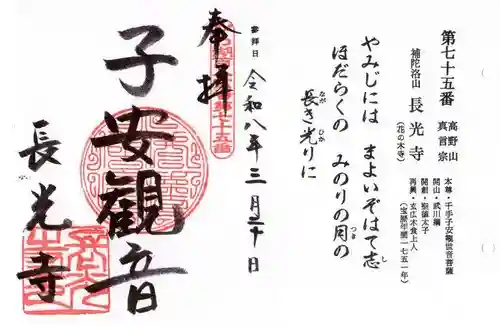 第七十五番
高野山
真言宗
補陀洛山 長光寺
(花の木寺)
本尊・千手子安観世音菩薩
開山・武川綱
開創・聖徳太子
再興・玄広木食上人
(宝暦年間一七五一年)
やみじには まよいぞはて志
ほだらくの みのりの月の
長き光りに
なが
ひか
つき
し
参拝日
令和八年三月二十日
奉拝
子安観音
長光寺